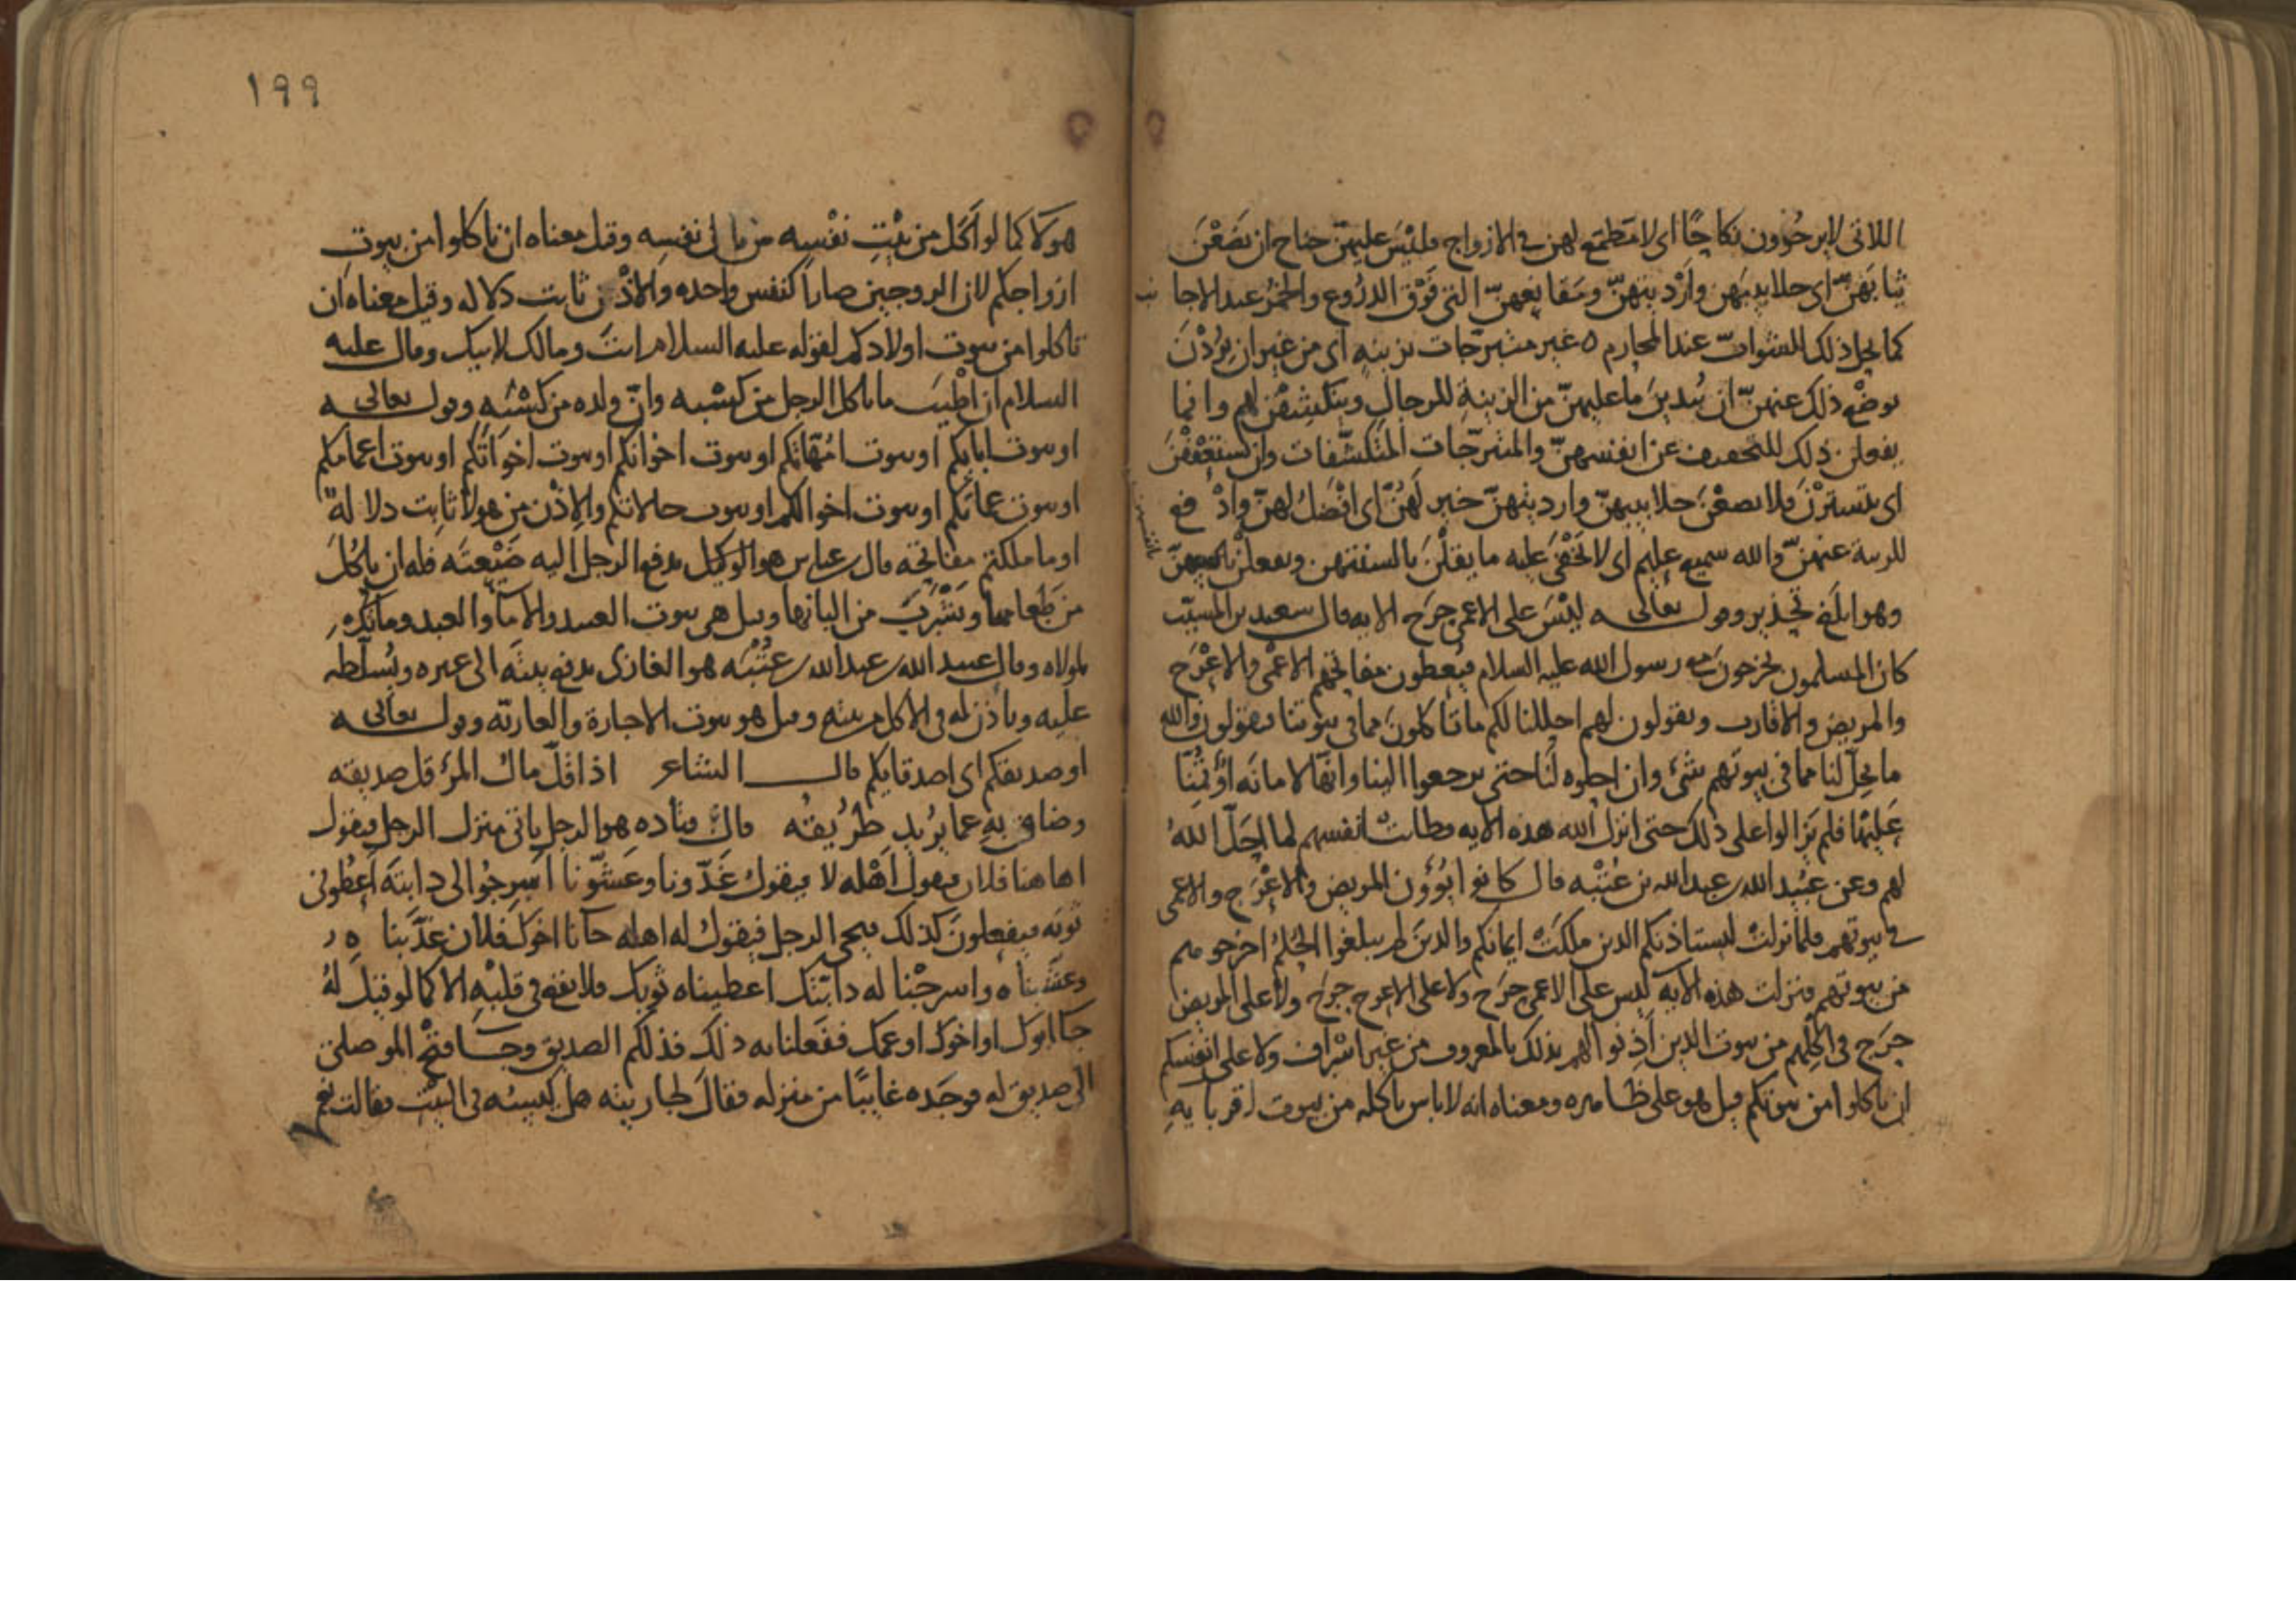 اللاتى لا يرجُوون نكاحًا اى لا مَطمَع لهن فى الازواج فليْسَ عليهنّ جناح ان يَضَعْنَ
ثيابَهنّ اى جلابيبَهن وأرْديتهنّ ومَقانِعهنّ التى فَوْق الدرُوع والخُمُر عند الاجانب
كما يحل ذلك للشوابّ عند المحارم ه غير متبرّجات بزينهٍ اى من غير ان يُرِدْنَ
بوضْع ذلك عنهنّ ان يُبدينَ ما عليهنّ من الزينةِ للرجالِ وينكشِفْن لهم وانما
يفعلن ذلك للتخفيف عن انفسهنّ والمتبرّجات المتكشّفات وان يستعْفِفْنَ
اى يتستّرْنَ فلا يضعْنَ جلابيبهنّ وارديتهنّ خير لَهُنّ اى افْضَلُ لهنّ وادْفع
للريبة عنهنّ والله سميع عليم اى لا يَخْفَى عليه ما يقُلْنَ بالسنتهن ويفعلْنَ
وهو ابلَغ تحذير وقول‍ه تعالى ليْسَ على الاعمى حرَج الايه قال سعيد بن المسيّب
كان المسلمون يخرجونَ مع رسول الله عليه السلام فيُعطون مفاتحَهم الاعْمَى والاعْرَج
والمريض والاقارب ويقولون لهم احللنا لكم ما تاكلونَ مما فى بيوتنا فيقولون والله
ما يحِلّ لنا مما فى بيوتهم شىْء وان احلوه لَنَا حتى يرجعوا الينا وانّها لامانَه اؤتُمِنّا
عَليْها فلم يَزالوا على ذلك حتى انزل الله هذه الايه فطابت انفسهم لما احَلّ اللهُ
لهم وعن عُبَيْد الله بن عبد الله بن عُتْبَه قال كانوا يُؤوُون المريض والاعْرَج والاعمى
فى بيوتهم فلما نزلتْ ليستاذنكم الذين ملكَتْ ايمانكم والذينَ لم يبلغوا الحُلُمَ اخرجوهم
من بيوتهم فنزلت هذه الايه ليس على الاعمى حرَج ولا على الاعرج حرَج ولا على المريض
حرَج فى اكْلِهم من بيوت الذين أَذِنوا لهم بذلك بالمعروف من غير اسْراف ولا على انفسكم
ان تاكلوا من بيوتكم قيل هو على ظاهره ومعناه انه لا باس باكله من بيوت اقربايهِ
١٩٩
هولا كما لو اَكَل من بَيْتِ نفْسِه من مال نفسِه وقيل معناه ان تاكلوا من بيوتِ
ازواجكم لان الزوجين صارا كنفس واحده والاذْن ثابت دلاله وقيل معناه ان
تاكلوا من بيوت اولادكم لقوله عليه السلام انتَ ومالك لابيك وقال عليه
السلام ان اطْيبَ ما ياكل الرجل من كسْبه وانّ ولده من كسْبِه وقول‍ه تعالى
او بيوت ابايكم او بيوت امّهاتكم او بيوت اخوانكم او بيوت اخوَاتكم او بيوت اعمامكم
او بيوت عماتكم او بيوت اخوالكم او بيوت خالاتكم والاِذْن من هولا ثابت دلالةً
او ما ملكتم مفاتحَه قال ابن عباس هو الوكيل يدفع الرجل اليه ضَيْعتَه فله ان ياكُلَ
من طَعامها ويَشْرَبَ من البانها وقيل هى بيوت العبيد والاماء والعبد وما
لمولاه وقال عبيد الله بن عبد الله بن عُتْبَه هو الغازى يدفع بيتَه الى غيره ويُسلّطه
عليه وياذن له فى الاكل من بيته وقيل هو بيوت الاجارة والعاريّه وقول‍ه تعالى
او صديقكم اى اصدقايكم قال الشاعر اذا قلّ مالُ المرْء قل صديقه
وضاقت بهِ عما يُريد طرُيقُه قال قتاده هو الرجل ياتى منزل الرجل فيقول
اهاهنا فلان فيقول اَهْله لا فيقول غَدّونا وعَشّونا اَسرِجُوا لى دابتَه أعطونى
ثوبَه فيفعلونَ كذلك فيجى الرجل فيقول له اهله جاءنا اخوكَ فلان غدّينا ه
وعشّيناه واسرجْنا له دابّتك اعطيناه ثوبك فلا يقع فى قلبْهِ الا كما لو قيل لهُ
جاء ابوك او اخوك او عمك ففعلنا به ذلك فذلكم الصديق وجاء فتْح الموصلى
الى صديق له فوجَده غايبًا من منزله فقالَ لجاريته هل كيسه فى البيْت فقالت نعم